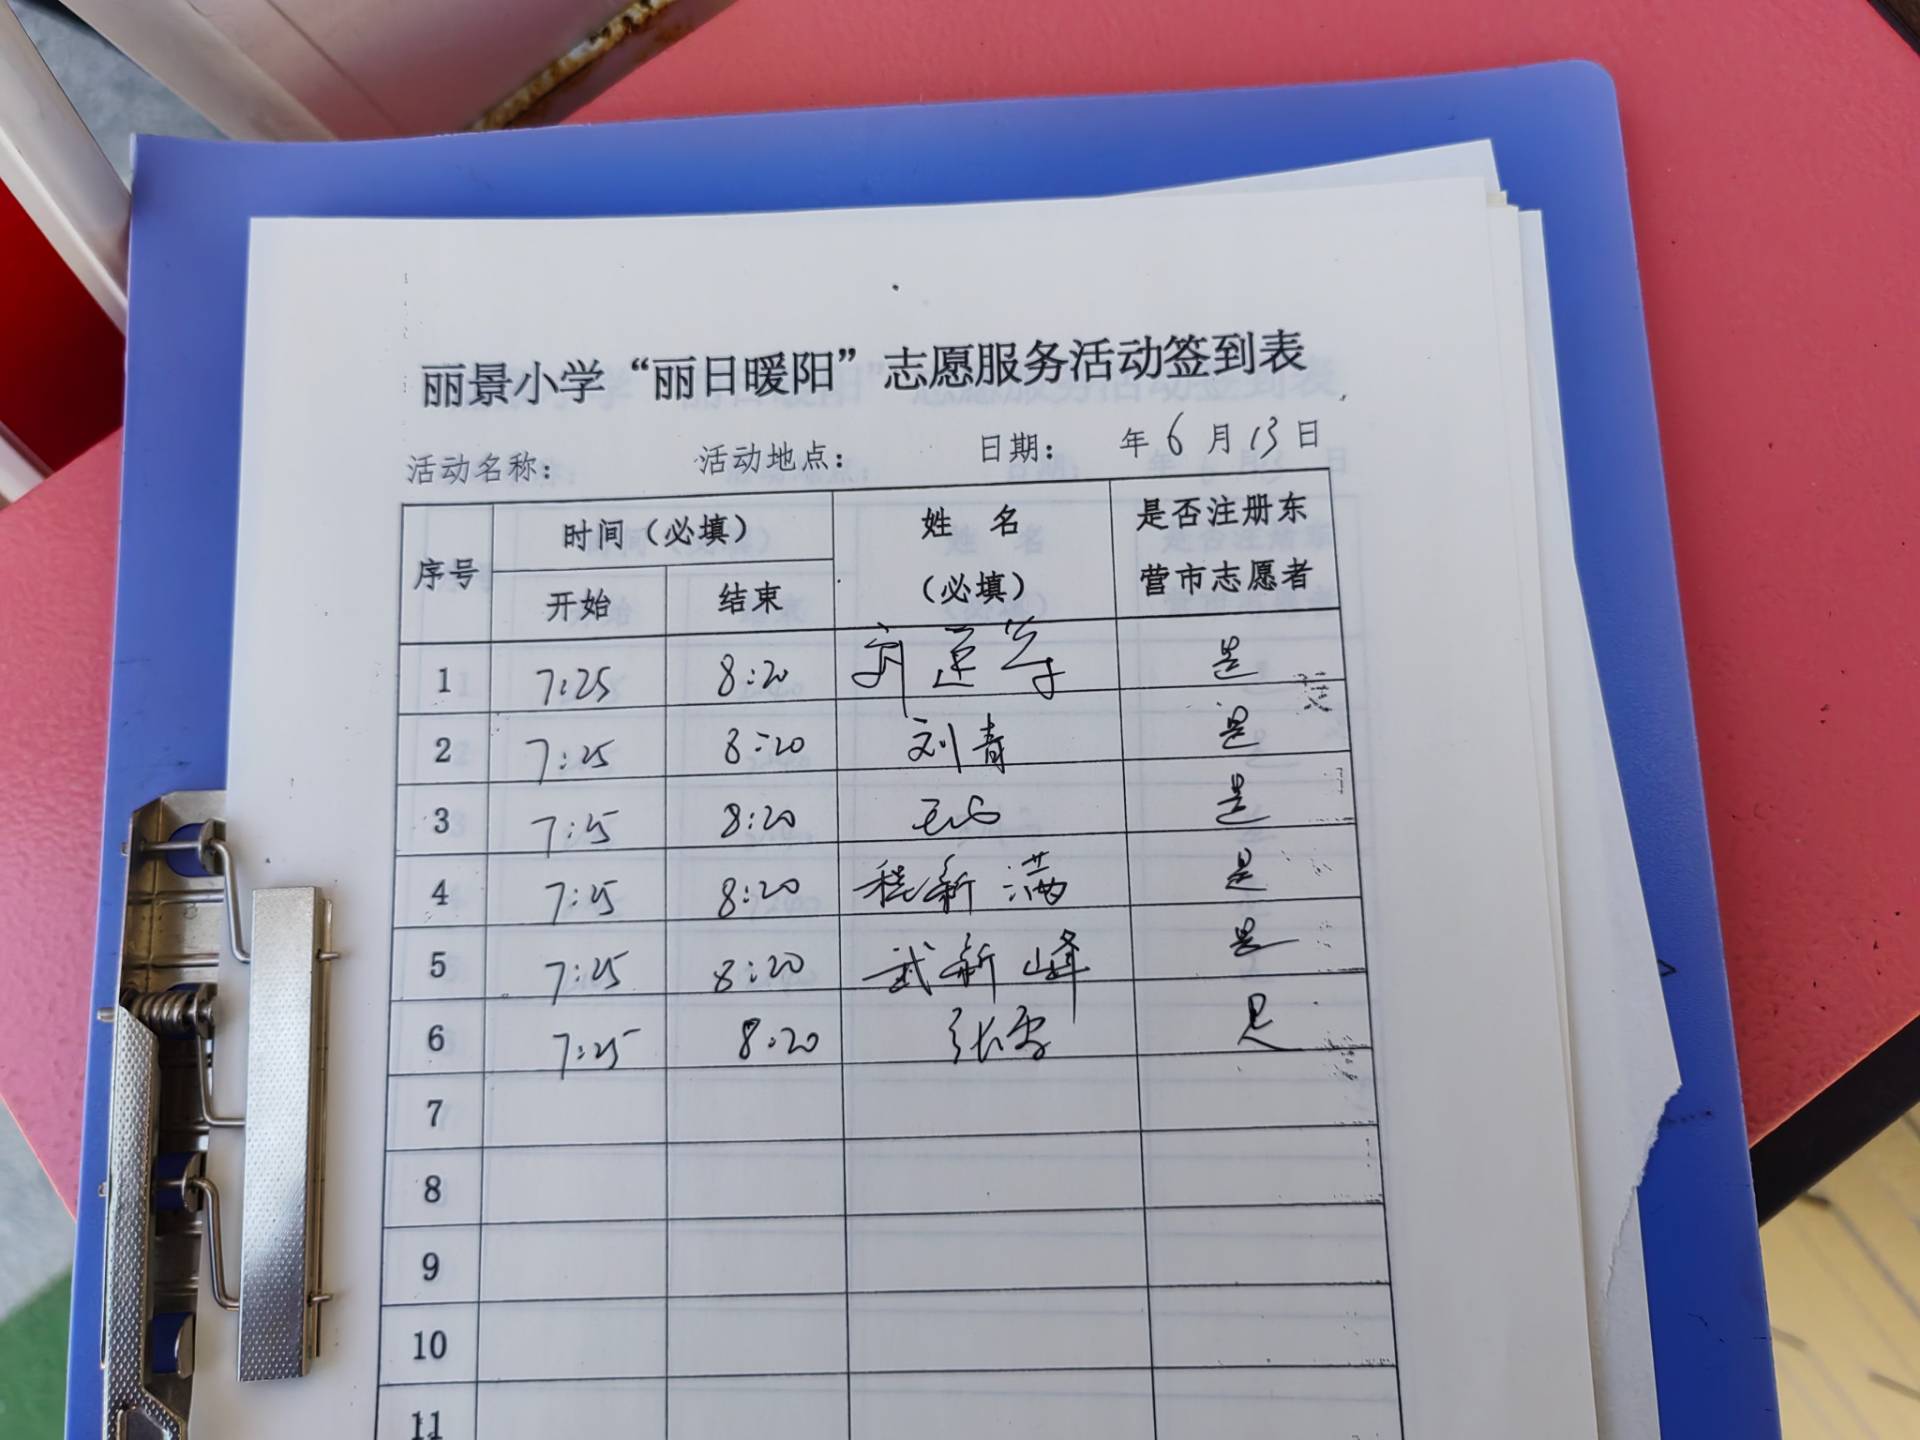 丽景小学“丽日暖阳”志愿服务活动签到表
活动名称： 活动地点： 日期： 年 6 月 13 日
序号 时间（必填） 姓 名（必填） 是否注册东营市志愿者
开始 结束
1 7:25 8:20 是
2 7:25 8:20 刘青 是
3 7:25 8:20 是
4 7:25 8:20 程新满 是
5 7:25 8:20 武新峰 是
6 7:25 8:20 张雪 是
7
8
9
10
11